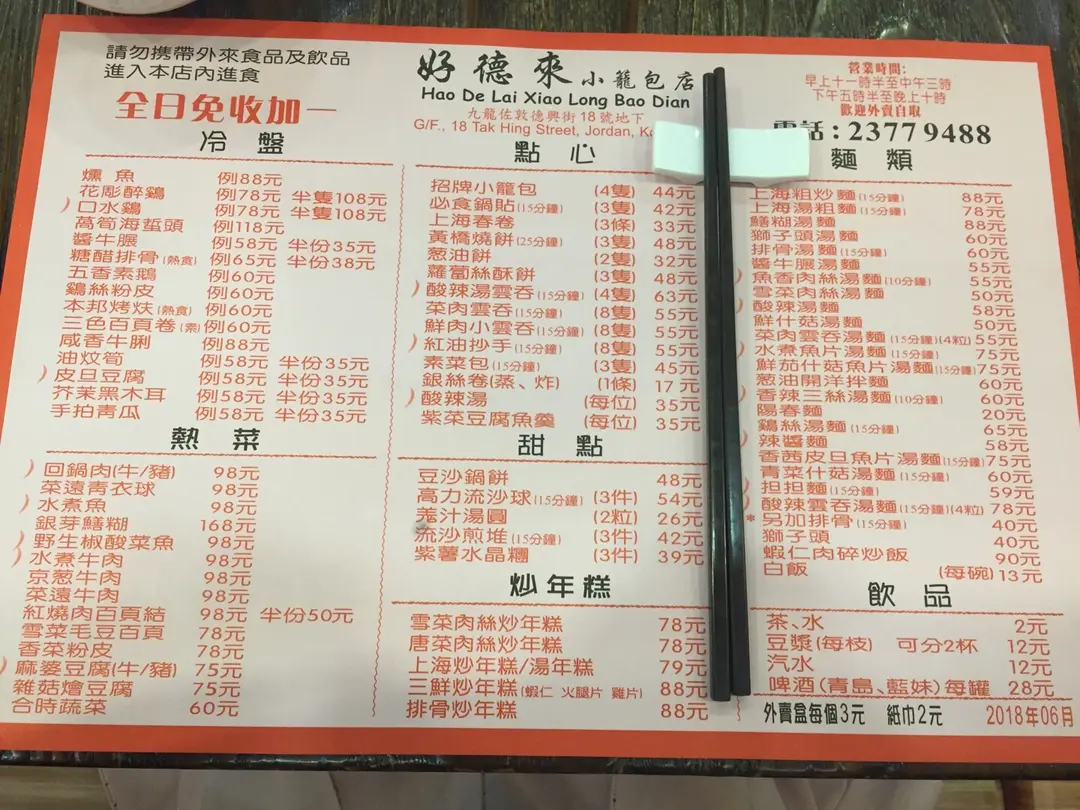 請勿携帶外來食品及飲品
進入本店內進食
全日免收加一
好德來小籠包店
Hao De Lai Xiao Long Bao Dian
九龍佐敦德興街18號地下
G/F., 18 Tak Hing Street, Jordan,
營業時間:
早上十一時半至中午三時
下午五時半至晚上十時
歡迎外賣自取
電話:2377 9488
冷盤
燻魚 例88元
花彫醉鷄 例78元 半隻108元
)口水鷄 例78元 半隻108元
萵筍海蜇頭 例118元
醬牛𦟌 例58元 半份35元
糖醋排骨(熱食) 例65元 半份38元
五香素鵝 例60元
鷄絲粉皮 例60元
本邦烤炑(熱食) 例60元
三色百頁卷(素) 例60元
咸香牛脷 例88元
油炆筍 例58元 半份35元
)皮旦豆腐 例58元 半份35元
芥茉黑木耳 例58元 半份35元
手拍青瓜 例58元 半份35元
熱菜
)回鍋肉(牛/豬) 98元
菜遠青衣球 98元
)水煮魚 98元
銀芽鱔糊 168元
)野生椒酸菜魚 98元
)水煮牛肉 98元
京葱牛肉 98元
菜遠牛肉 98元
紅燒肉百頁結 98元 半份50元
雪菜毛豆百頁 78元
香菜粉皮 78元
)麻婆豆腐(牛/豬) 75元
雜菇燴豆腐 75元
合時蔬菜 60元
點心
招牌小籠包 (4隻) 44元
必食鍋貼(15分鐘) (3隻) 42元
上海春卷 (3條) 33元
黃橋燒餅(25分鐘) (3隻) 48元
葱油餅 (2隻) 32元
蘿蔔絲酥餅 (3隻) 48元
)酸辣湯雲吞(15分鐘) (4隻) 63元
菜肉雲吞(15分鐘) (8隻) 55元
鮮肉小雲吞(15分鐘) (8隻) 55元
)紅油抄手(15分鐘) (8隻) 55元
素菜包(15分鐘) (3隻) 45元
銀絲卷(蒸、炸) (1條) 17元
)酸辣湯 (每位) 35元
紫菜豆腐魚羹 (每位) 35元
甜點
豆沙鍋餅 48元
高力流沙球(15分鐘) (3件) 54元
羗汁湯圓 (2粒) 26元
流沙煎堆(15分鐘) (3件) 42元
紫薯水晶糰 (3件) 39元
炒年糕
雪菜肉絲炒年糕 78元
唐菜肉絲炒年糕 78元
上海炒年糕/湯年糕 79元
三鮮炒年糕(蝦仁 火腿片 雞片) 88元
排骨炒年糕 88元
麵類
上海粗炒麵(15分鐘) 88元
上海湯粗麵(15分鐘) 78元
鱔糊湯麵 88元
獅子頭湯麵 60元
排骨湯麵(15分鐘) 60元
醬牛𦟌湯麵 55元
)魚香肉絲湯麵(10分鐘) 55元
雪菜肉絲湯麵 50元
)酸辣湯麵 58元
鮮什菇湯麵 50元
菜肉雲吞湯麵(15分鐘)(4粒) 55元
)水煮魚片湯麵(15分鐘) 75元
鮮茄什菇魚片湯麵(15分鐘) 75元
葱油開洋拌麵 60元
)香辣三絲湯麵(10分鐘) 60元
陽春麵 20元
鷄絲湯麵(15分鐘) 65元
)辣醬麵 58元
香茜皮旦魚片湯麵(15分鐘) 75元
青菜什菇湯麵(15分鐘) 60元
)担担麵(15分鐘) 59元
)酸辣雲吞湯麵(15分鐘)(4粒) 78元
*另加排骨(15分鐘) 40元
獅子頭 40元
蝦仁肉碎炒飯 90元
白飯 (每碗) 13元
飲品
茶、水 2元
豆漿(每枝) 可分2杯 12元
汽水 12元
啤酒(青島、藍妹)每罐 28元
外賣盒每個3元 紙巾2元 2018年06月